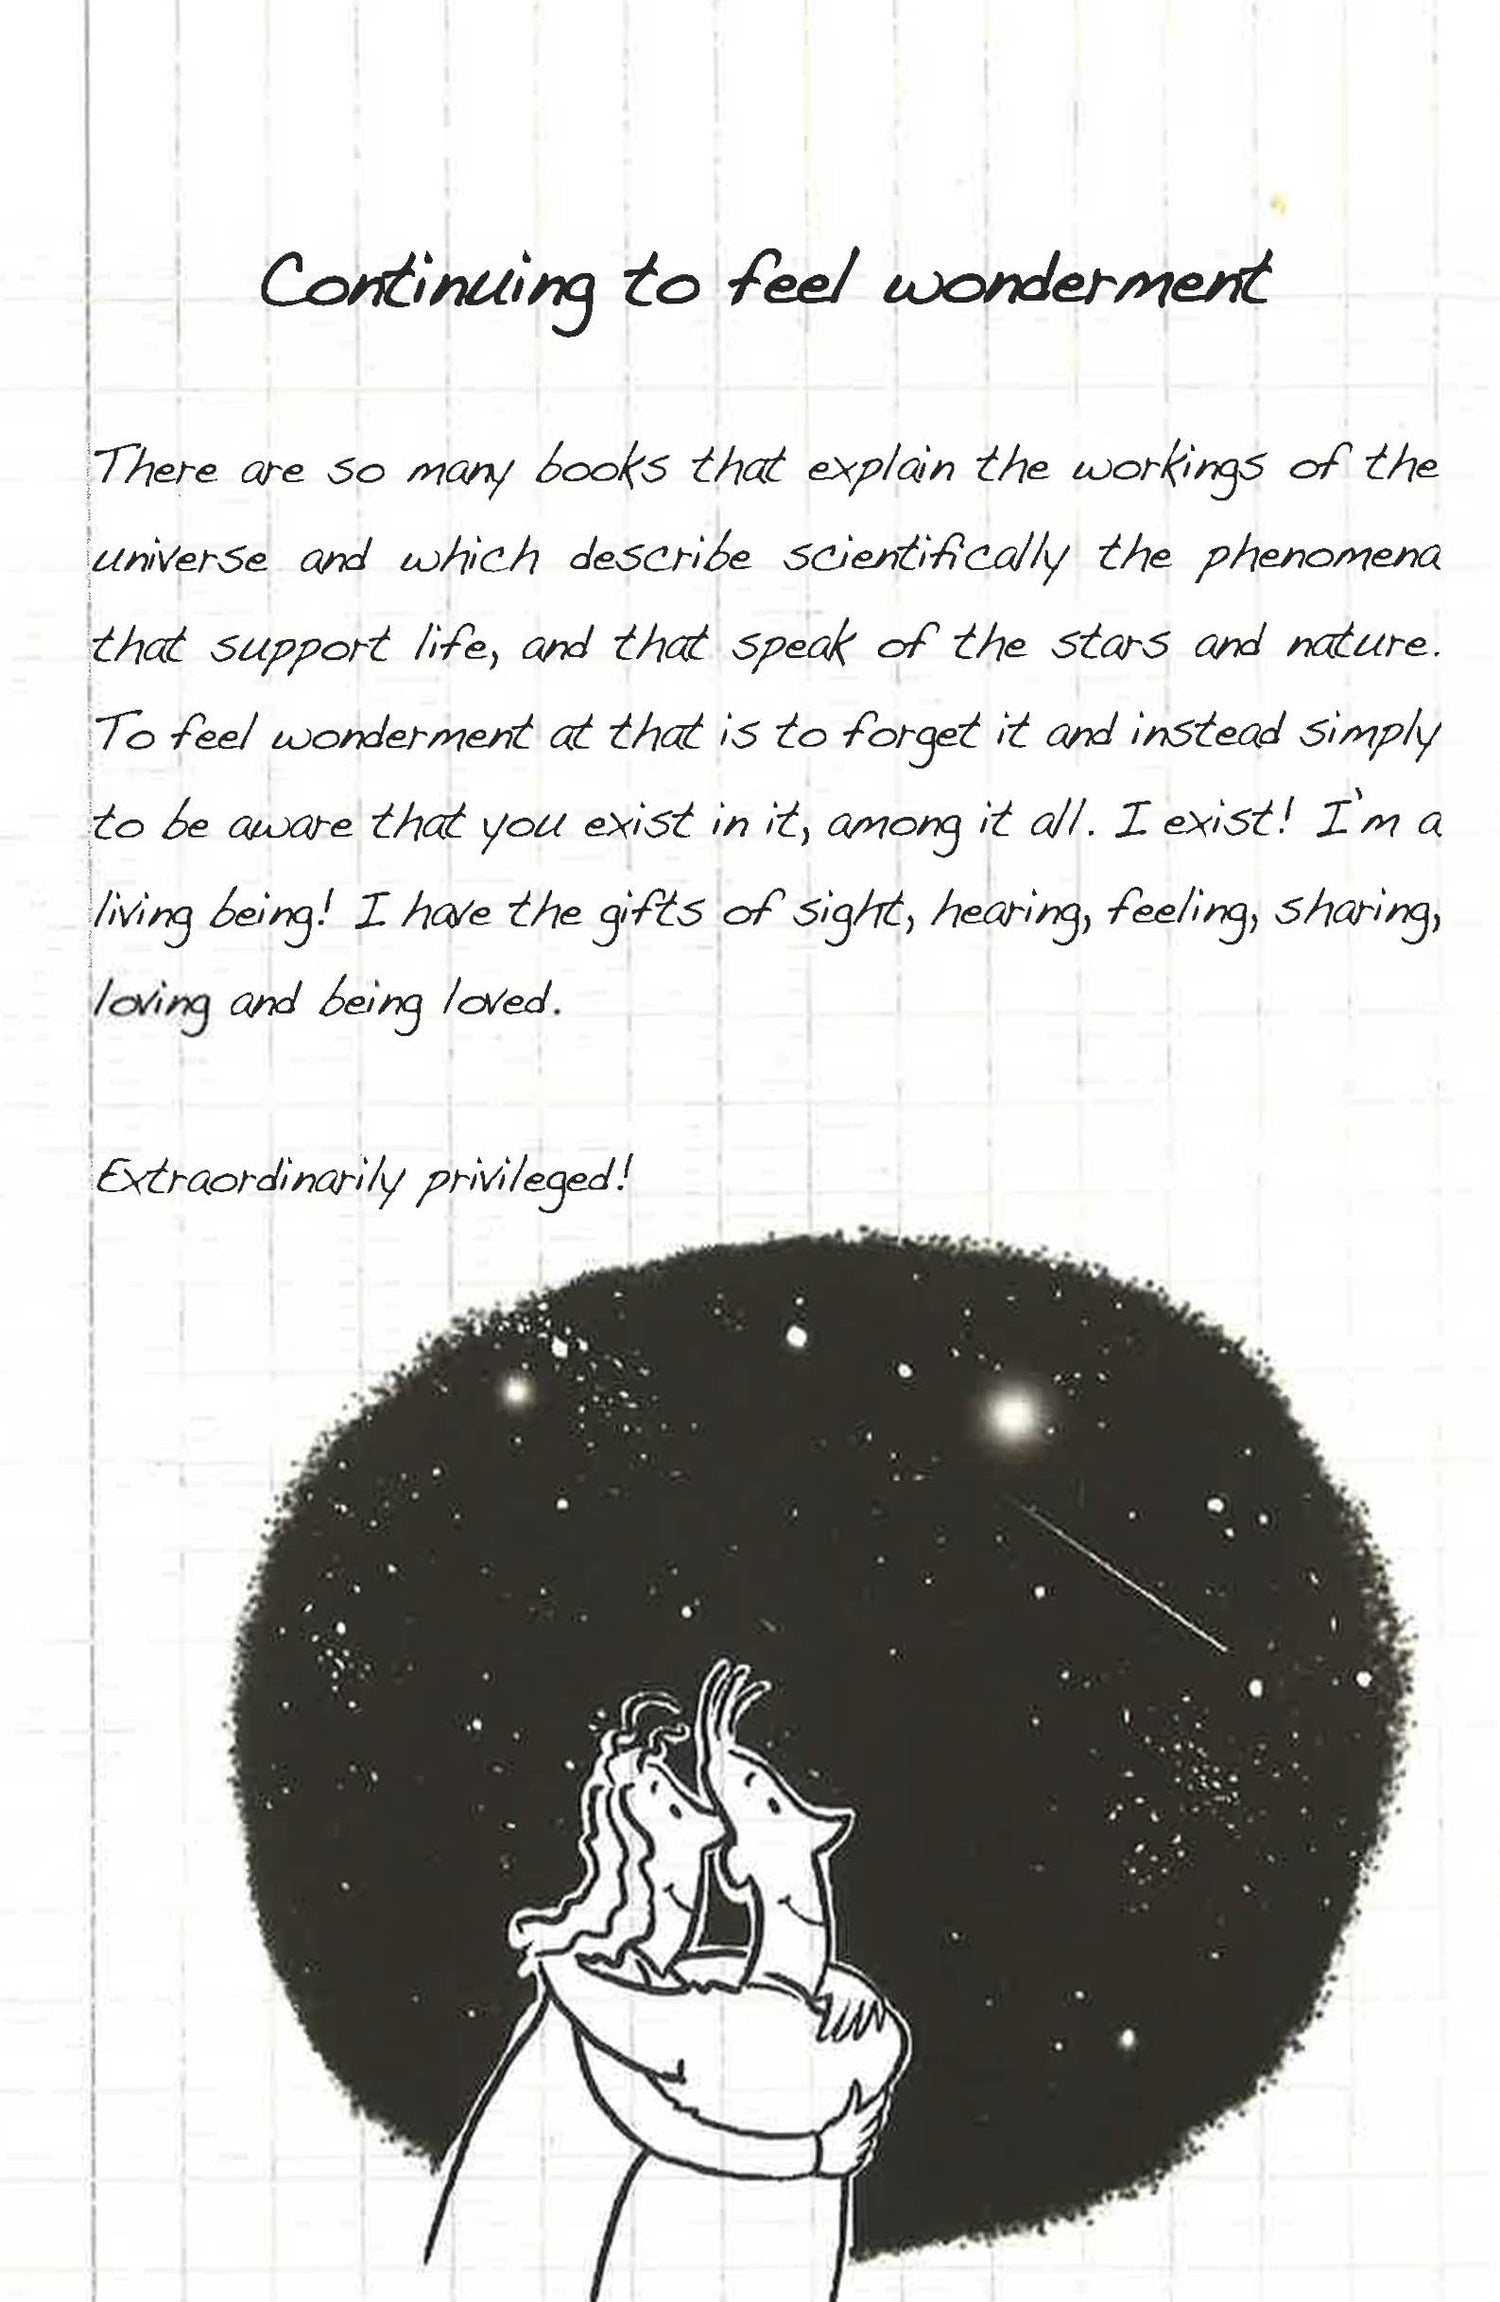 Continuing to feel wonderment
There are so many books that explain the workings of the
universe and which describe scientifically the phenomena
that support life, and that speak of the stars and nature.
To feel wonderment at that is to forget it and instead simply
to be aware that you exist in it, among it all. I exist! I'm a
living being! I have the gifts of sight, hearing, feeling, sharing,
loving and being loved.
Extraordinarily privileged!